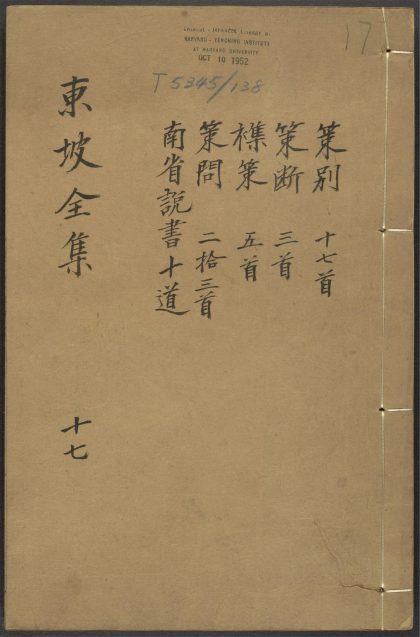 Chinese - Japanese Library of
HARVARD - YENCHING INSTITUTE
AT HARVARD UNIVERSITY
OCT 10 1952
17
T 5345/138
策别 十七首
策断 三首
襍策 五首
策問 二拾三首
南省説書十道
東坡全集 十七